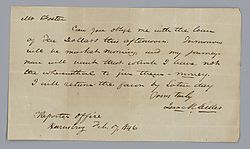 Mr Foster
Can you oblige me with the loan
of Ten Dollars this afternoon. Tomorrow
will be market morning, and my journey-
men will want that which I have not
the wherewithal to give them — money.
I will return the favor by Saturday
Yours truly
Reporter Office
Feb. 17 1846